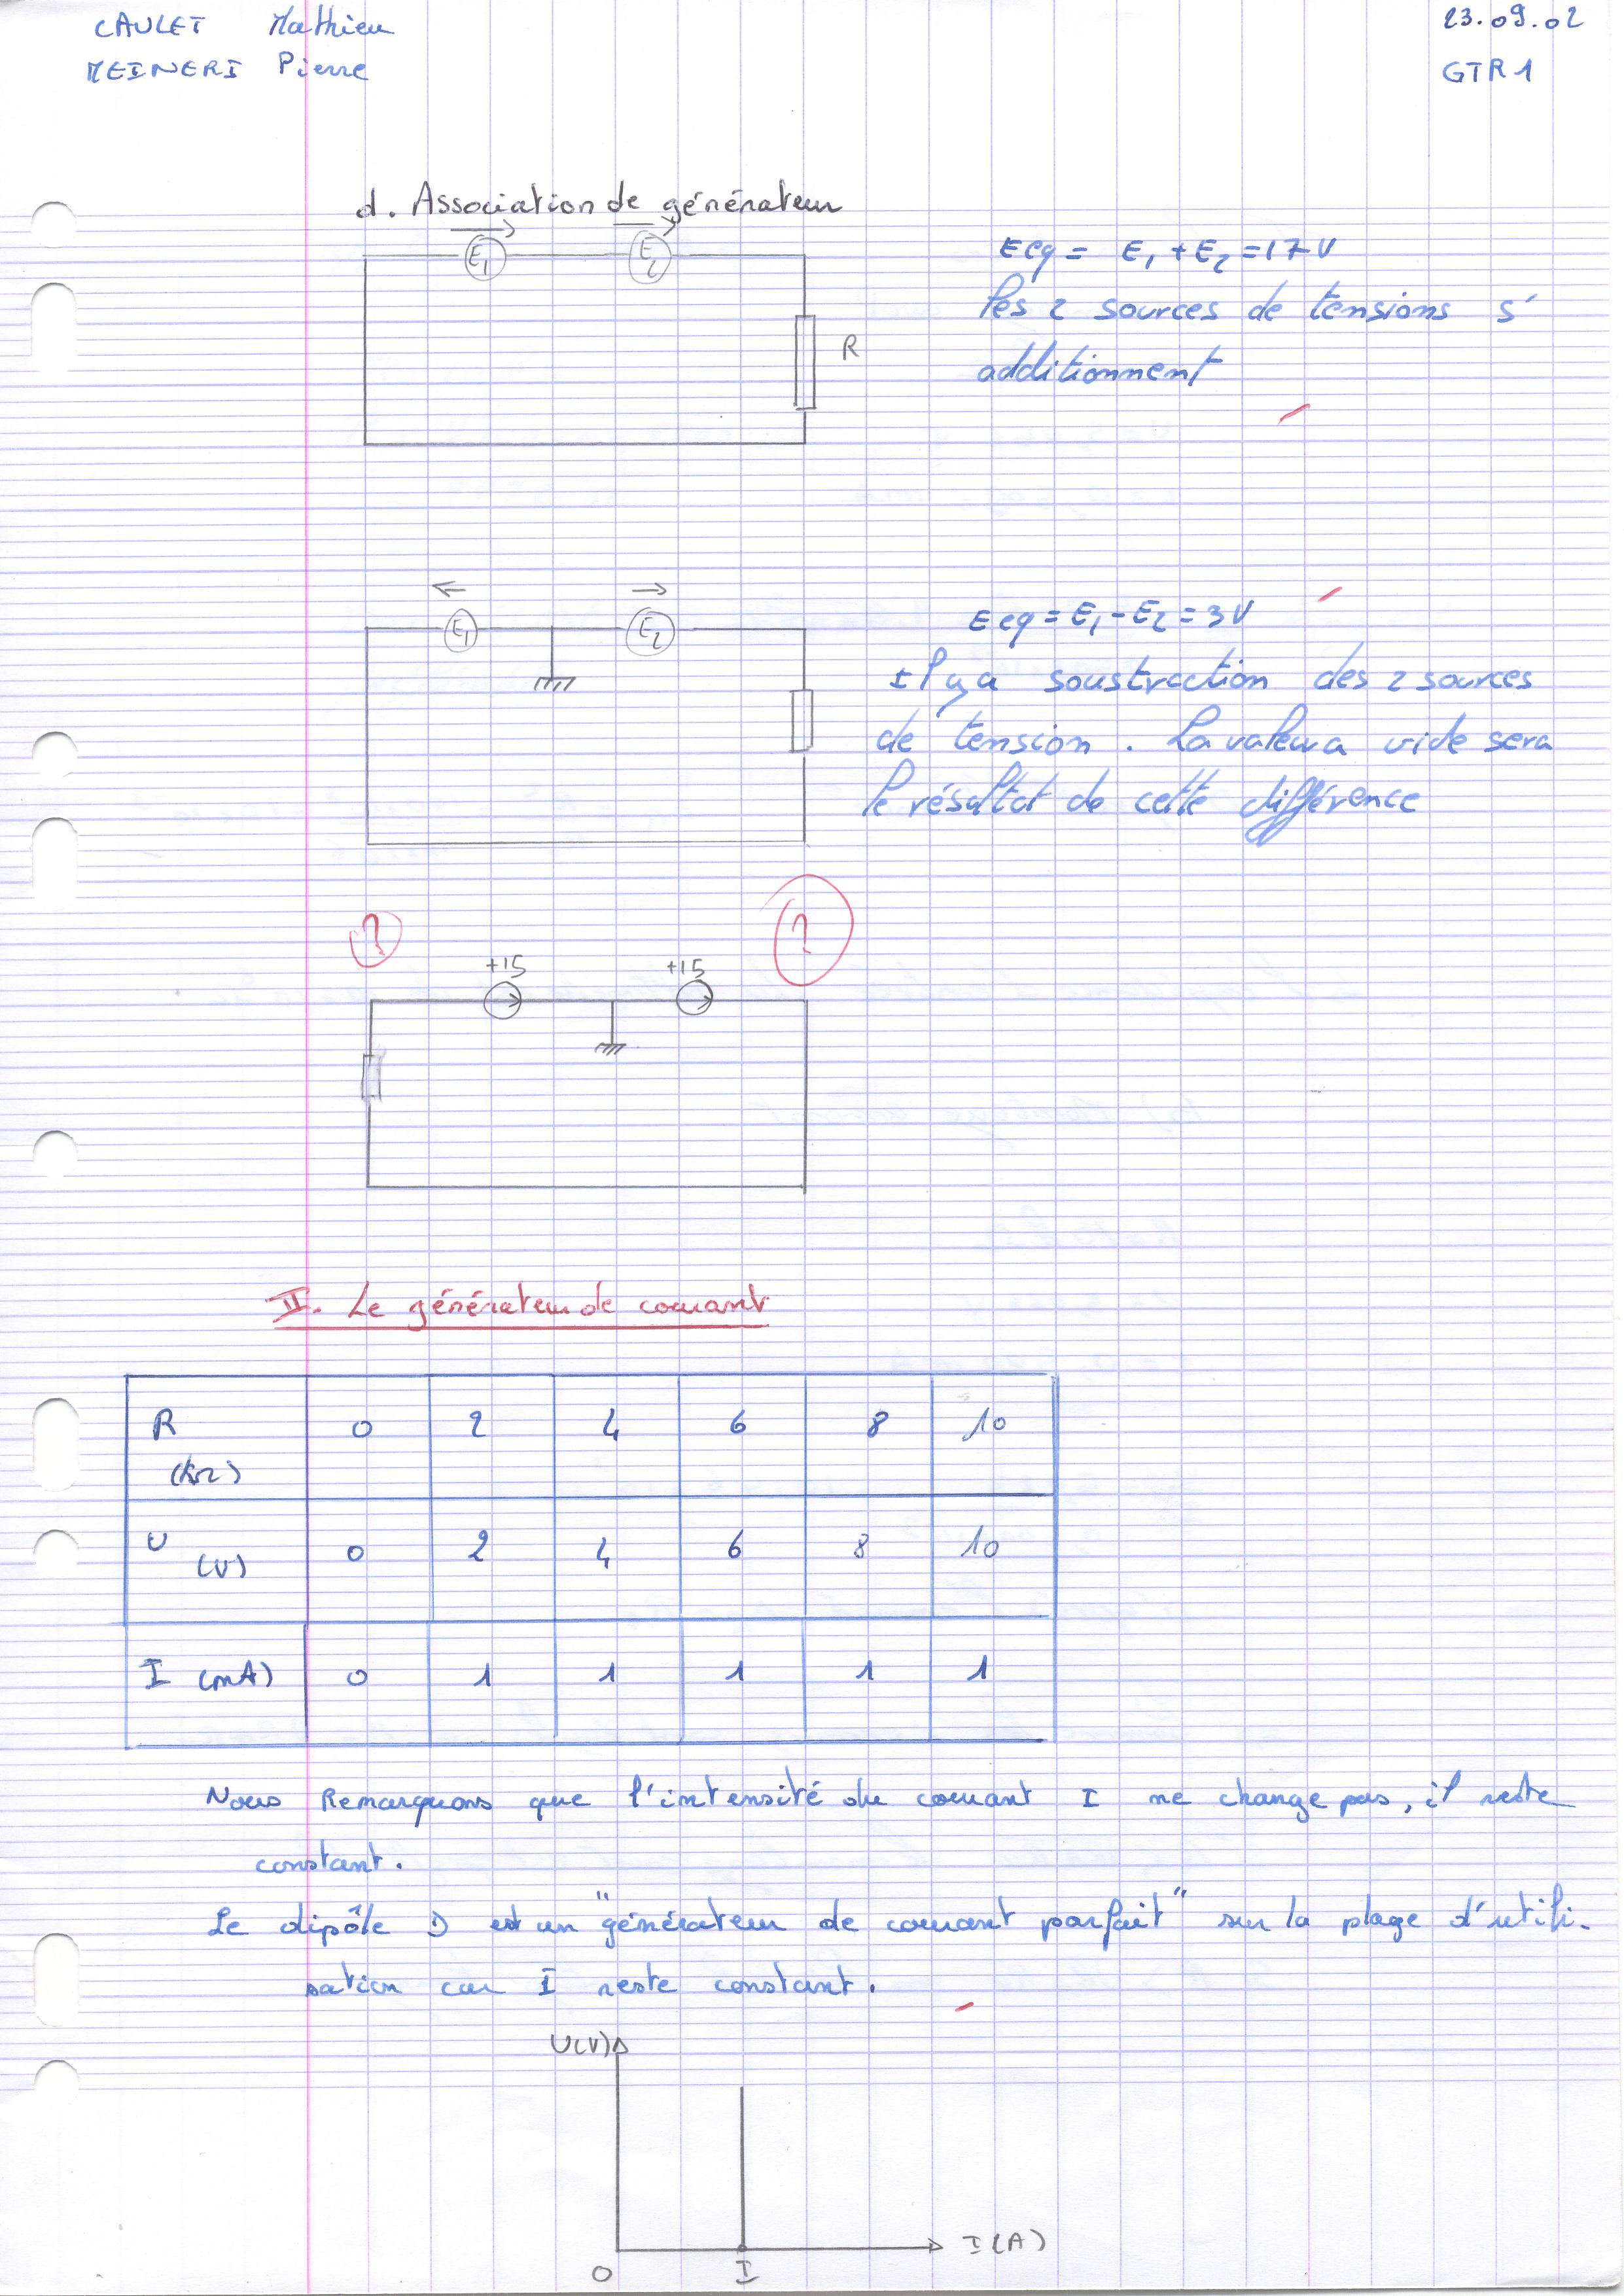 CAULET Mathieu
23.09.02
MEINERI Pierre
GTR1
d. Association de générateur
E1
E2
R
Eeq = E1 + E2 = 17 V
les 2 sources de tensions s'
additionnent
E1
E2
Eeq = E1 - E2 = 3 V
Il y a soustraction des 2 sources
de tension. La valeur a vide sera
le résultat de cette différence
?
?
+15
+15
II. Le générateur de courant
R (kΩ) 0 2 4 6 8 10
U (V) 0 2 4 6 8 10
I (mA) 0 1 1 1 1 1
Nous Remarquons que l'intensité du courant I ne change pas, il reste
constant.
Le dipôle D est un "générateur de courant parfait" sur la plage d'utili-
sation car I reste constant.
U(V)
O
I
I(A)